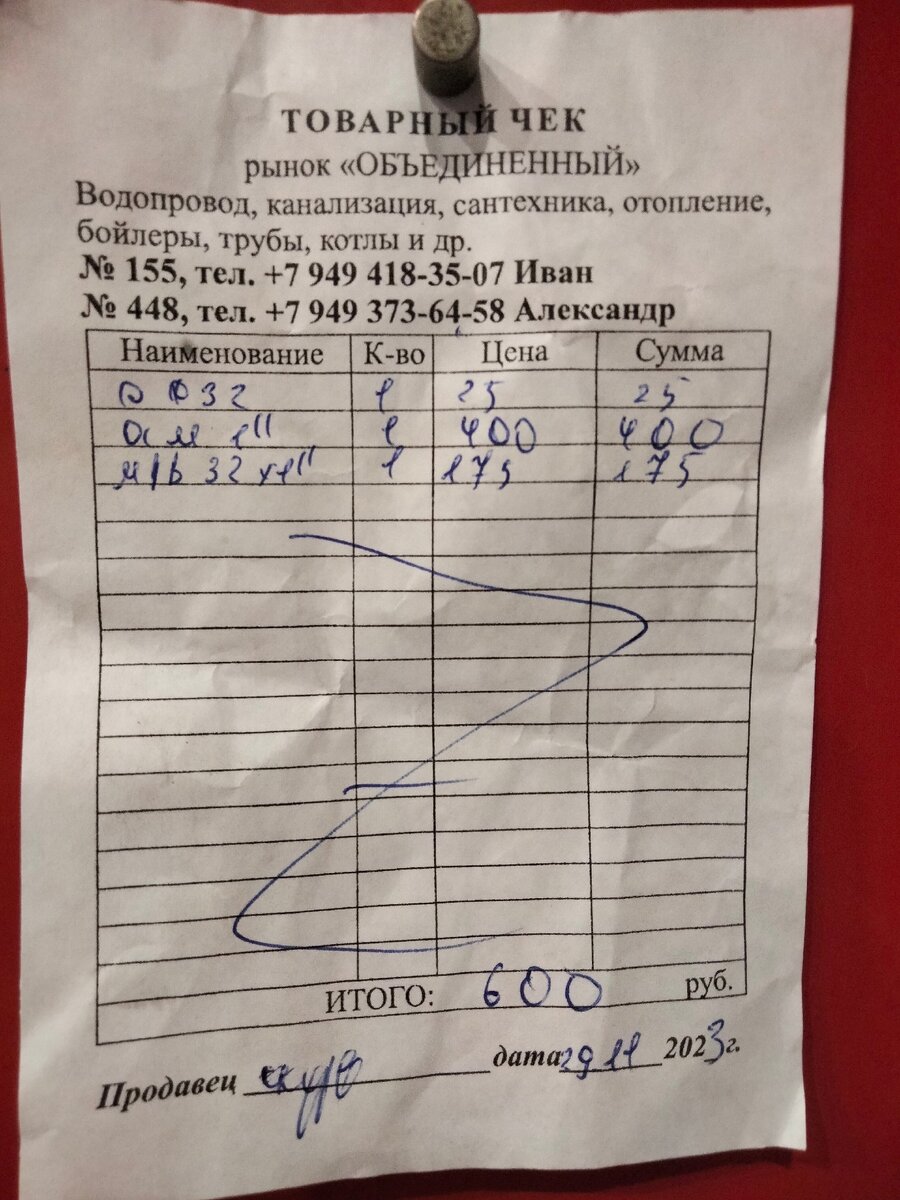 ТОВАРНЫЙ ЧЕК
рынок «ОБЪЕДИНЕННЫЙ»
Водопровод, канализация, сантехника, отопление,
бойлеры, трубы, котлы и др.
№ 155, тел. +7 949 418-35-07 Иван
№ 448, тел. +7 949 373-64-58 Александр
Наименование К-во Цена Сумма
32 1 25 25
1" 1 400 400
32x1" 1 175 175
ИТОГО: 600 руб.
Продавец дата 29 11 2023г.